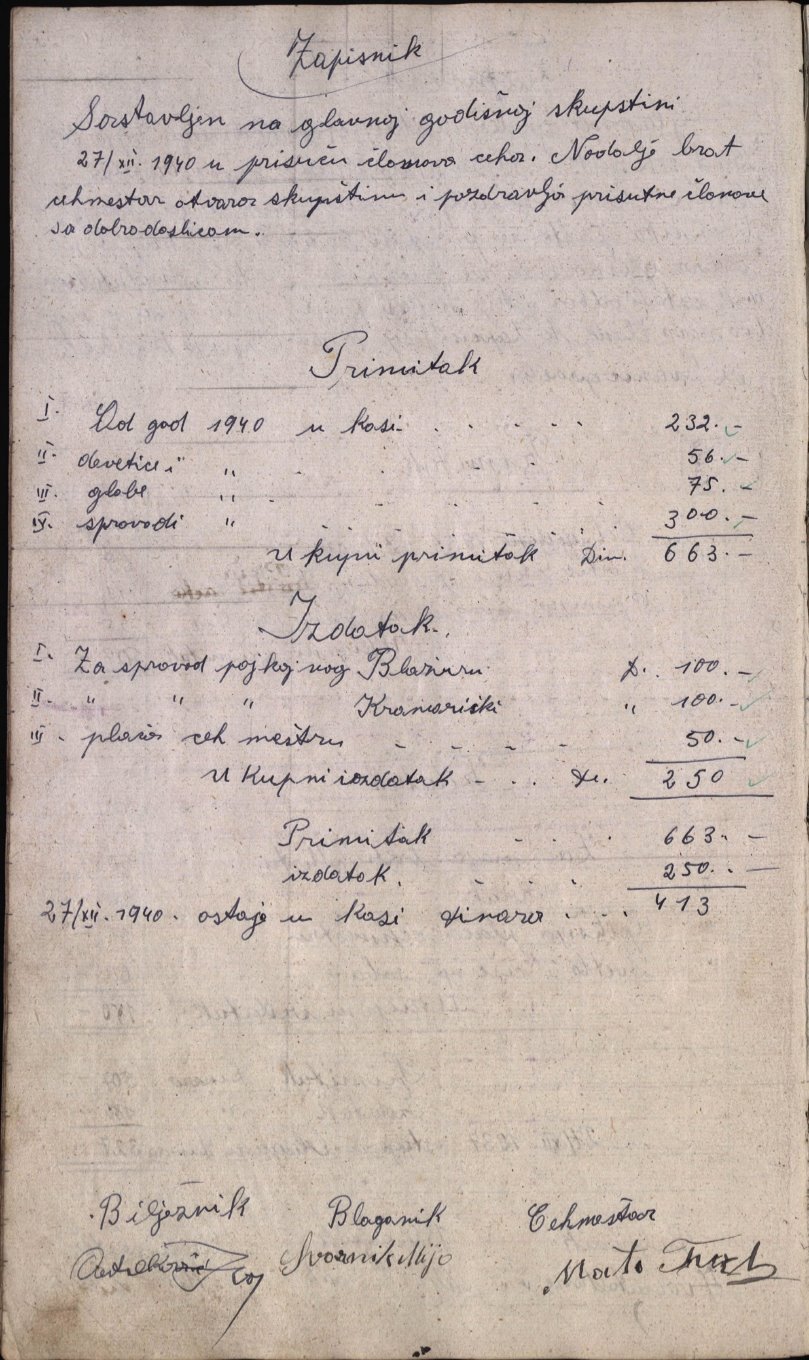 Zapisnik
Sastavljen na glavnoj godišnoj skupstini
27/XII. 1940 u prisuću članova ceha. Nadalje brat
cehmestar otvara skupštinu i pozdravlja prisutne članove
sa dobrodoslicom.
Primitak
I. Od god 1940 u kasi . . . . . 232.-
II. devetice " " . . . . 56.-
III. globe " . . . . 75.-
IV. sprovodi " . . . . 300.-
Ukupni primitak Din. 663.-
Izdatak.
I. Za sprovod pojkojnog Blažuru D. 100.-
II. " " " Kramariški " 100.-
III. plaća ceh meštru - - - - 50.-
Ukupni izdatak - . . Di. 250
Primitak - . . . 663.-
izdatak. . . . 250.-
27/XII. 1940. ostaje u kasi dinara . . . 413
Bilježnik Blaganik Cehmeštar
Svornik Mijo Mato